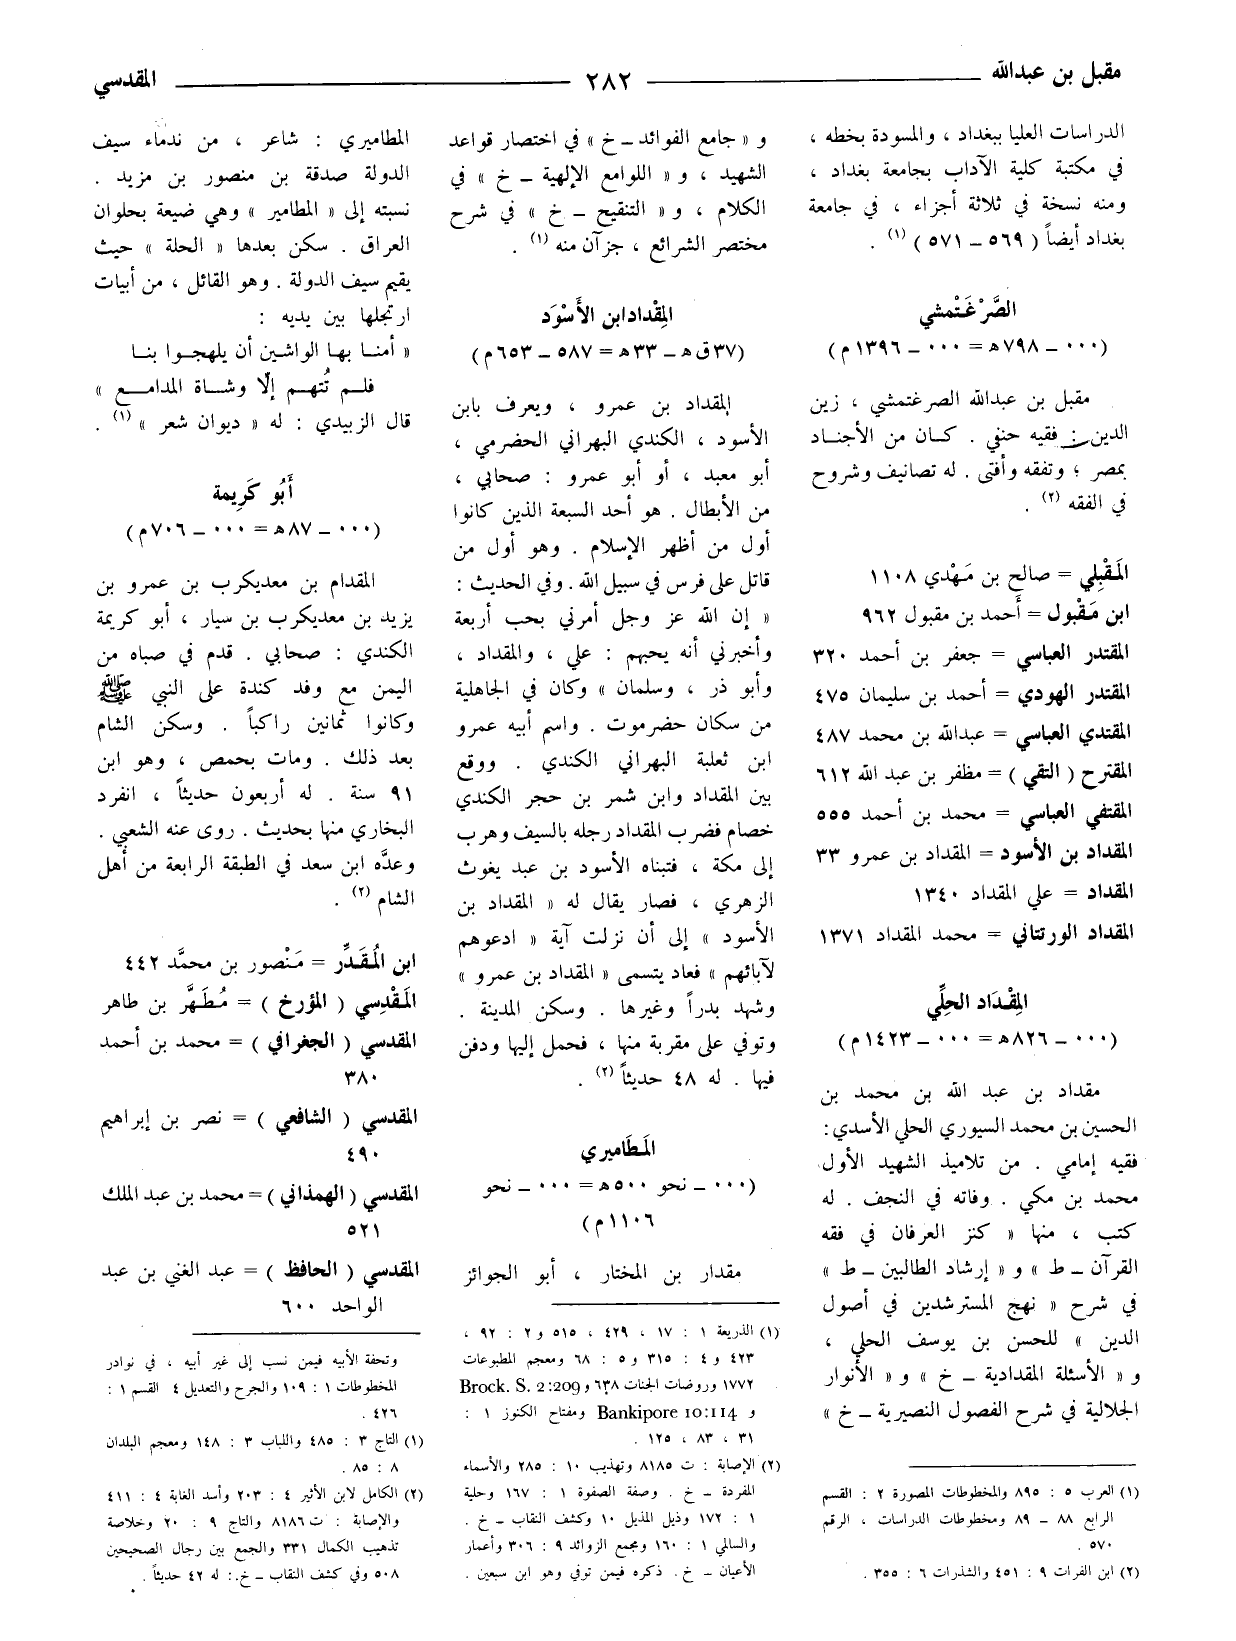 مقبل بن عبدالله
٢٨٢
المقدسي
الدراسات العليا ببغداد ، والمسودة بخطه ،
في مكتبة كلية الآداب بجامعة بغداد ،
ومنه نسخة في ثلاثة أجزاء ، في جامعة
بغداد أيضاً ( ٥٦٩ – ٥٧١ ) (١) .
الصَّرْغَتْمشي
(٠٠٠ – ٧٩٨ ه‍ = ٠٠٠ – ١٣٩٦ م)
مقبل بن عبدالله الصرغتمشي ، زين
الدين : فقيه حنفي . كان من الأجناد
بمصر ؛ وتفقه وأفتى . له تصانيف وشروح
في الفقه (٢) .
المَقْبِلي = صالح بن مَهْدي ١١٠٨
ابن مَقْبول = أحمد بن مقبول ٩٦٢
المقتدر العباسي = جعفر بن أحمد ٣٢٠
المقتدر الهودي = أحمد بن سليمان ٤٧٥
المقتدي العباسي = عبدالله بن محمد ٤٨٧
المقترح ( التقي ) = مظفر بن عبد الله ٦١٢
المقتفي العباسي = محمد بن أحمد ٥٥٥
المقداد بن الأسود = المقداد بن عمرو ٣٣
المقداد = علي المقداد ١٣٤٠
المقداد الورتتاني = محمد المقداد ١٣٧١
المِقْدَاد الحلِّي
(٠٠٠ – ٨٢٦ ه‍ = ٠٠٠ – ١٤٢٣ م)
مقداد بن عبد الله بن محمد بن
الحسين بن محمد السيوري الحلي الأسدي :
فقيه إمامي . من تلاميذ الشهيد الأول
محمد بن مكي . وفاته في النجف . له
كتب ، منها « كنز العرفان في فقه
القرآن – ط » و « إرشاد الطالبين – ط »
في شرح « نهج المسترشدين في أصول
الدين » للحسن بن يوسف الحلي ،
و « الأسئلة المقدادية – خ » و « الأنوار
الجلالية في شرح الفصول النصيرية – خ »
(١) العرب ٥ : ٨٩٥ والمخطوطات المصورة ٢ : القسم
الرابع ٨٨ – ٨٩ ومخطوطات الدراسات ، الرقم
٥٧٠ .
(٢) ابن الفرات ٩ : ٤٥١ والشذرات ٦ : ٣٥٥ .
و « جامع الفوائد – خ » في اختصار قواعد
الشهيد ، و « اللوامع الإلهية – خ » في
الكلام ، و « التنقيح – خ » في شرح
مختصر الشرائع ، جزآن منه (١) .
المِقْداد ابن الأَسْوَد
(٣٧ ق ه‍ – ٣٣ ه‍ = ٥٨٧ – ٦٥٣ م)
المقداد بن عمرو ، ويعرف بابن
الأسود ، الكندي البهراني الحضرمي ،
أبو معبد ، أو أبو عمرو : صحابي ،
من الأبطال . هو أحد السبعة الذين كانوا
أول من أظهر الإسلام . وهو أول من
قاتل على فرس في سبيل الله . وفي الحديث :
« إن الله عز وجل أمرني بحب أربعة
وأخبرني أنه يحبهم : علي ، والمقداد ،
وأبو ذر ، وسلمان » وكان في الجاهلية
من سكان حضرموت . واسم أبيه عمرو
ابن ثعلبة البهراني الكندي . ووقع
بين المقداد وابن شمر بن حجر الكندي
خصام فضرب المقداد رجله بالسيف وهرب
إلى مكة ، فتبناه الأسود بن عبد يغوث
الزهري ، فصار يقال له « المقداد بن
الأسود » إلى أن نزلت آية « ادعوهم
لآبائهم » فعاد يتسمى « المقداد بن عمرو »
وشهد بدراً وغيرها . وسكن المدينة .
وتوفي على مقربة منها ، فحمل إليها ودفن
فيها . له ٤٨ حديثاً (٢) .
المَطَاميري
(٠٠٠ – نحو ٥٠٠ ه‍ = ٠٠٠ – نحو
١١٠٦ م)
مقدار بن المختار ، أبو الجوائز
(١) الذريعة ١ : ١٧ ، ٤٢٩ ، ٥١٥ و ٢ : ٩٢ ،
٤٢٣ و ٤ : ٣١٥ و ٥ : ٦٨ ومعجم المطبوعات
١٧٧٢ وروضات الجنات ٦٣٨ و Brock. S. 2:209
و Bankipore 10:114 ومفتاح الكنوز ١ :
٣١ ، ٨٣ ، ١٢٥ .
(٢) الإصابة : ت ٨١٨٥ وتهذيب ١٠ : ٢٨٥ والأسماء
المفردة – خ . وصفة الصفوة ١ : ١٦٧ وحلية
١ : ١٧٢ وذيل المذيل ١٠ وكشف النقاب – خ .
والسالمي ١ : ١٦٠ ومجمع الزوائد ٩ : ٣٠٦ وأعمار
الأعيان – خ . ذكره فيمن توفي وهو ابن سبعين .
المطاميري : شاعر ، من ندماء سيف
الدولة صدقة بن منصور بن مزيد .
نسبته إلى « المطامير » وهي ضيعة بحلوان
العراق . سكن بعدها « الحلة » حيث
يقيم سيف الدولة . وهو القائل ، من أبيات
ارتجلها بين يديه :
« أمنا بها الواشين أن يلهجوا بنا
فلم تُتهم إلّا وشاة المدامع »
قال الزبيدي : له « ديوان شعر » (١) .
أَبُو كَرِيمة
(٠٠٠ – ٨٧ ه‍ = ٠٠٠ – ٧٠٦ م)
المقدام بن معديكرب بن عمرو بن
يزيد بن معديكرب بن سيار ، أبو كريمة
الكندي : صحابي . قدم في صباه من
اليمن مع وفد كندة على النبي ﷺ
وكانوا ثمانين راكباً . وسكن الشام
بعد ذلك . ومات بحمص ، وهو ابن
٩١ سنة . له أربعون حديثاً ، انفرد
البخاري منها بحديث . روى عنه الشعبي .
وعدَّه ابن سعد في الطبقة الرابعة من أهل
الشام (٢) .
ابن المُقَدِّر = مَنْصور بن محمَّد ٤٤٢
المَقْدِسي ( المؤرخ ) = مُطَهَّر بن طاهر
المقدسي ( الجغرافي ) = محمد بن أحمد
٣٨٠
المقدسي ( الشافعي ) = نصر بن إبراهيم
٤٩٠
المقدسي ( الهمذاني ) = محمد بن عبد الملك
٥٢١
المقدسي ( الحافظ ) = عبد الغني بن عبد
الواحد ٦٠٠
وتحفة الأبيه فيمن نسب إلى غير أبيه ، في نوادر
المخطوطات ١ : ١٠٩ والجرح والتعديل ٤ القسم ١ :
٤٢٦ .
(١) التاج ٣ : ٤٨٥ واللباب ٣ : ١٤٨ ومعجم البلدان
٨ : ٨٥ .
(٢) الكامل لابن الأثير ٤ : ٢٠٣ وأسد الغابة ٤ : ٤١١
والإصابة : ت ٨١٨٦ والتاج ٩ : ٢٠ وخلاصة
تذهيب الكمال ٣٣١ والجمع بين رجال الصحيحين
٥٠٨ وفي كشف النقاب – خ . : له ٤٢ حديثاً .